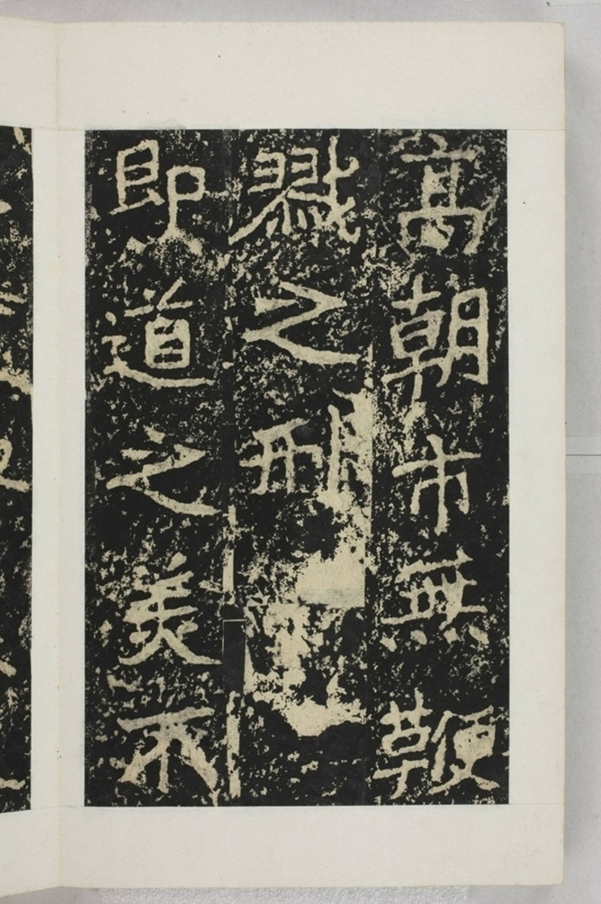 高朝市無鞭
戮之刑
即道之美不